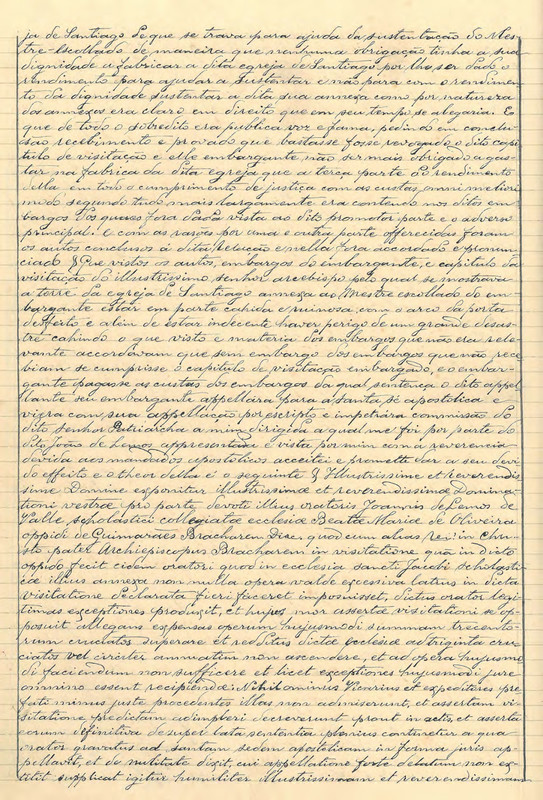 ja de Santiago e que se trava para ajuda da sustentação do Mes-
tre-Escholado de maneira que nenhuma obrigação tinha a sua
dignidade a fabricar a dita egreja de Santiago por lhe ser dado o
rendimento para ajudar a sustentar e não para com o rendimen-
to da dignidade sustentar a dita sua annexa como por natureza
dos annexos era claro em direito que em seu tempo se alegaria. E
que de todo o sobredito era publica voz e fama, pedindo em conclu-
são recebimento e provado que bastasse fosse revogado o dito capi-
tulo de visitação e elle embargante não ser mais obrigado a gas-
tar na fabrica da dita egreja que a terça parte do rendimento
della em todo o cumprimento de justiça com as custas, omni meliori
modo segundo tudo mais largamente era contendo nos ditos em-
bargos dos quaes fora dada vista ao dito promotor parte e o adverso
principal. E com as rasões por uma e outra parte offerecidas foram
os autos conclusos á dita Relação e nella fora accordado e pronun-
ciado § Que vistos os autos, embargos do embargante, e capitulo da
visitação do illustrissimo senhor arcebispo pelo qual se mostrava
a torre da egreja de Santiago annexa ao Mestre escollado do em-
bargante estar em parte cahida e ruinosa, com o arco da porta
desfeito e além de estar indecente haver perigo de um grande desas-
tre cahindo o que visto e materia dos embargos que não era rele-
vante accordavam que sem embargo dos embargos que não rece-
biam se cumprisse o capitulo de visitação embargado, e o embar-
gante pagasse as custas dos embargos da qual sentença o dito appel-
lante seu embargante appellára para a santa sé apostolica e
viera com sua appellação por escripto e impetrára commissão do
dito senhor Patriarcha a mim dirigida a qual me foi por parte do
dito João de Lemos appresentada e vista por mim com a reverencia
devida aos mandados apostolicos acceitei e prometti dar a seu devi-
do effeito e o theor della é o seguinte § Illustrissime et reverendis
sime Domine exponitur illustrissimæ et reverendissimæ Domina-
tioni vestræ pro parte devoti illius oratoris Joannis de Lemos de
Valle scholastici collegiatæ ecclesiæ Beatæ Mariæ de Oliveira
oppidi de Guimarães Bracharem Dioc. quod cum alias rev. in Chri-
sto pater Archiepiscopus Bracharem in visitatione qua in dicto
oppido fecit eidem oratori quod in ecclesia sancti Jacobi scholasti-
iæ illius annexa non nulla opera valde excessiva latius in dicta
visitatione declarata fieri faceret imposuisset, dictus orator legi-
timas exceptiones produxit, et hujus mor assertæ visitationi se op-
posuit allegans expensas operum hujusmodi summam trecento-
rum cruciatos superare et redditus dictæ ecclesiæ ad triginta cru-
ciatos vel circiter annuatim non ascendere, et ad opera hujusmo-
di faciendum non sufficere et licet exceptiones hujusmodi jure
omnino essent recipiendæ: Nihilominus Vicarius et expeditores pre-
fati minus juste procedentes illas non admiserunt, et assertam vi-
sitatione predictam adimpleri decreverunt prout in actis, et asserta
eorum definitiva desuper lata sententia plenius continetur a qua
orator gravatus ad santam sedem apostolicam in forma juris ap-
pellavit, et de nulitate dixit, cui appellatione forte delatum non ex-
titit supplicat igitur humiliter Illustrissimam et reverendissimam